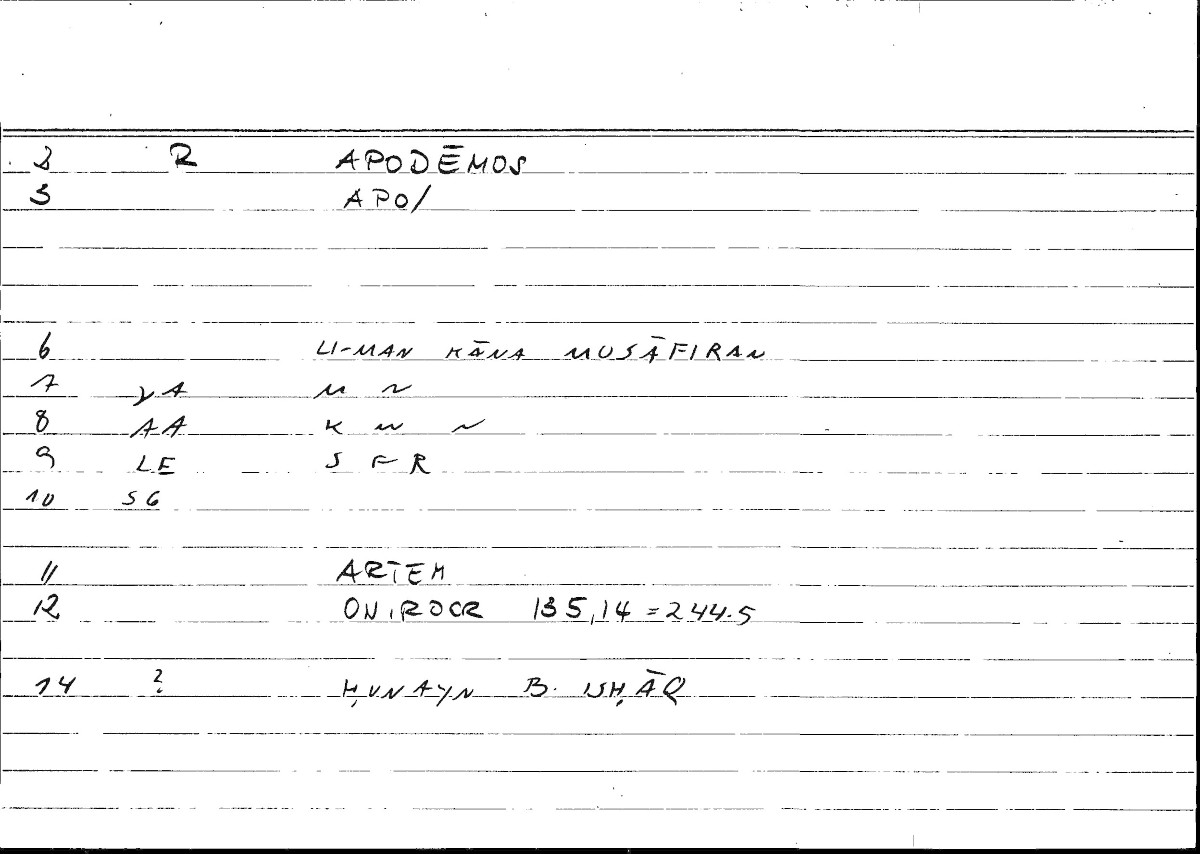 2 R APODĒMOS
3 APO/
6 LI-MAN KĀNA MUSĀFIRAN
7 YA M N
8 AA K W N
9 LE S F R
10 SG
11 ARTEM
12 ONIROCR 135,14 = 244.5
14 ? ḤUNAYN B. ISḤĀQ